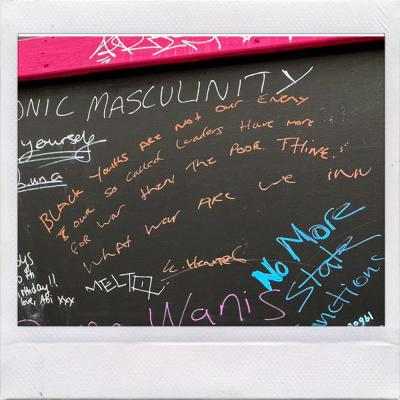 ONIC MASCULINITY
yourself
BLACK Youths ARE Not our Enemy
& our so called leaders Have more
FOR WAR then THE POOR THINE
WHAT WAR ARE we inn
MELT
No More
State
anctions
Wanis
love, Abi xxx